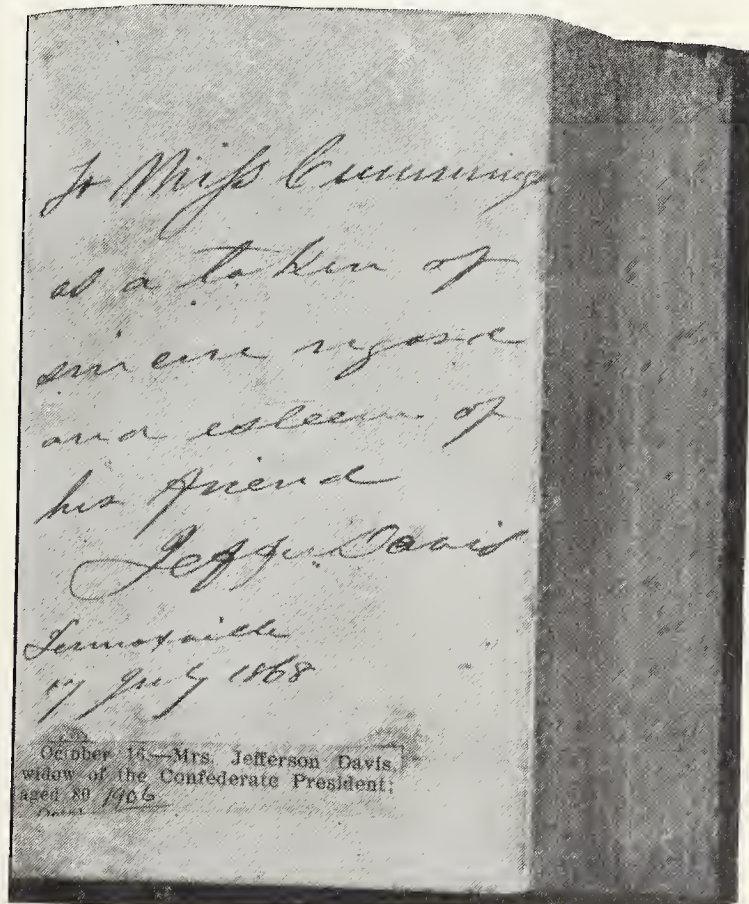 To Miss Cummings
as a token of
sincere regard
and esteem of
his friend
Jeffer. Davis
Lennoxville
17 July 1868
October 16.—Mrs. Jefferson Davis,
widow of the Confederate President;
aged 80 1906